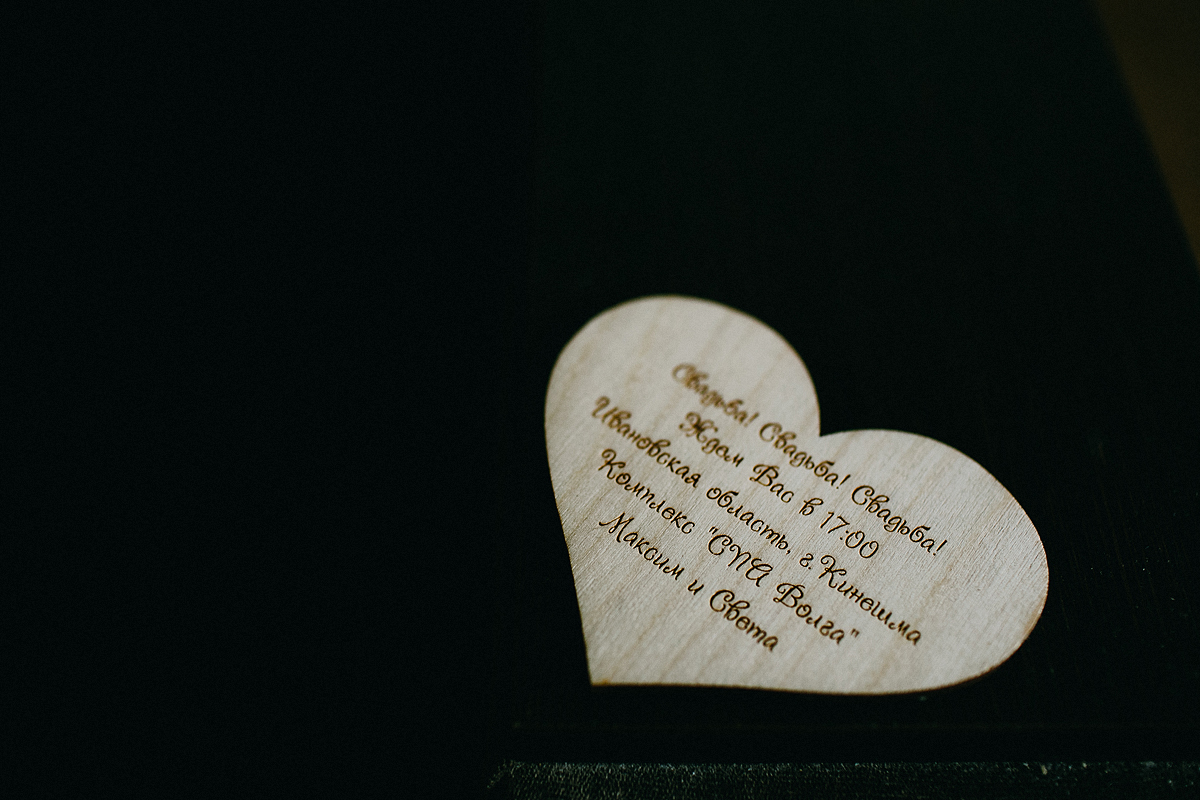 Свадьба! Свадьба! Свадьба!
Ждем Вас в 17:00
Ивановская область, г. Кинешма
Комплекс "СПА Волга"
Максим и Света